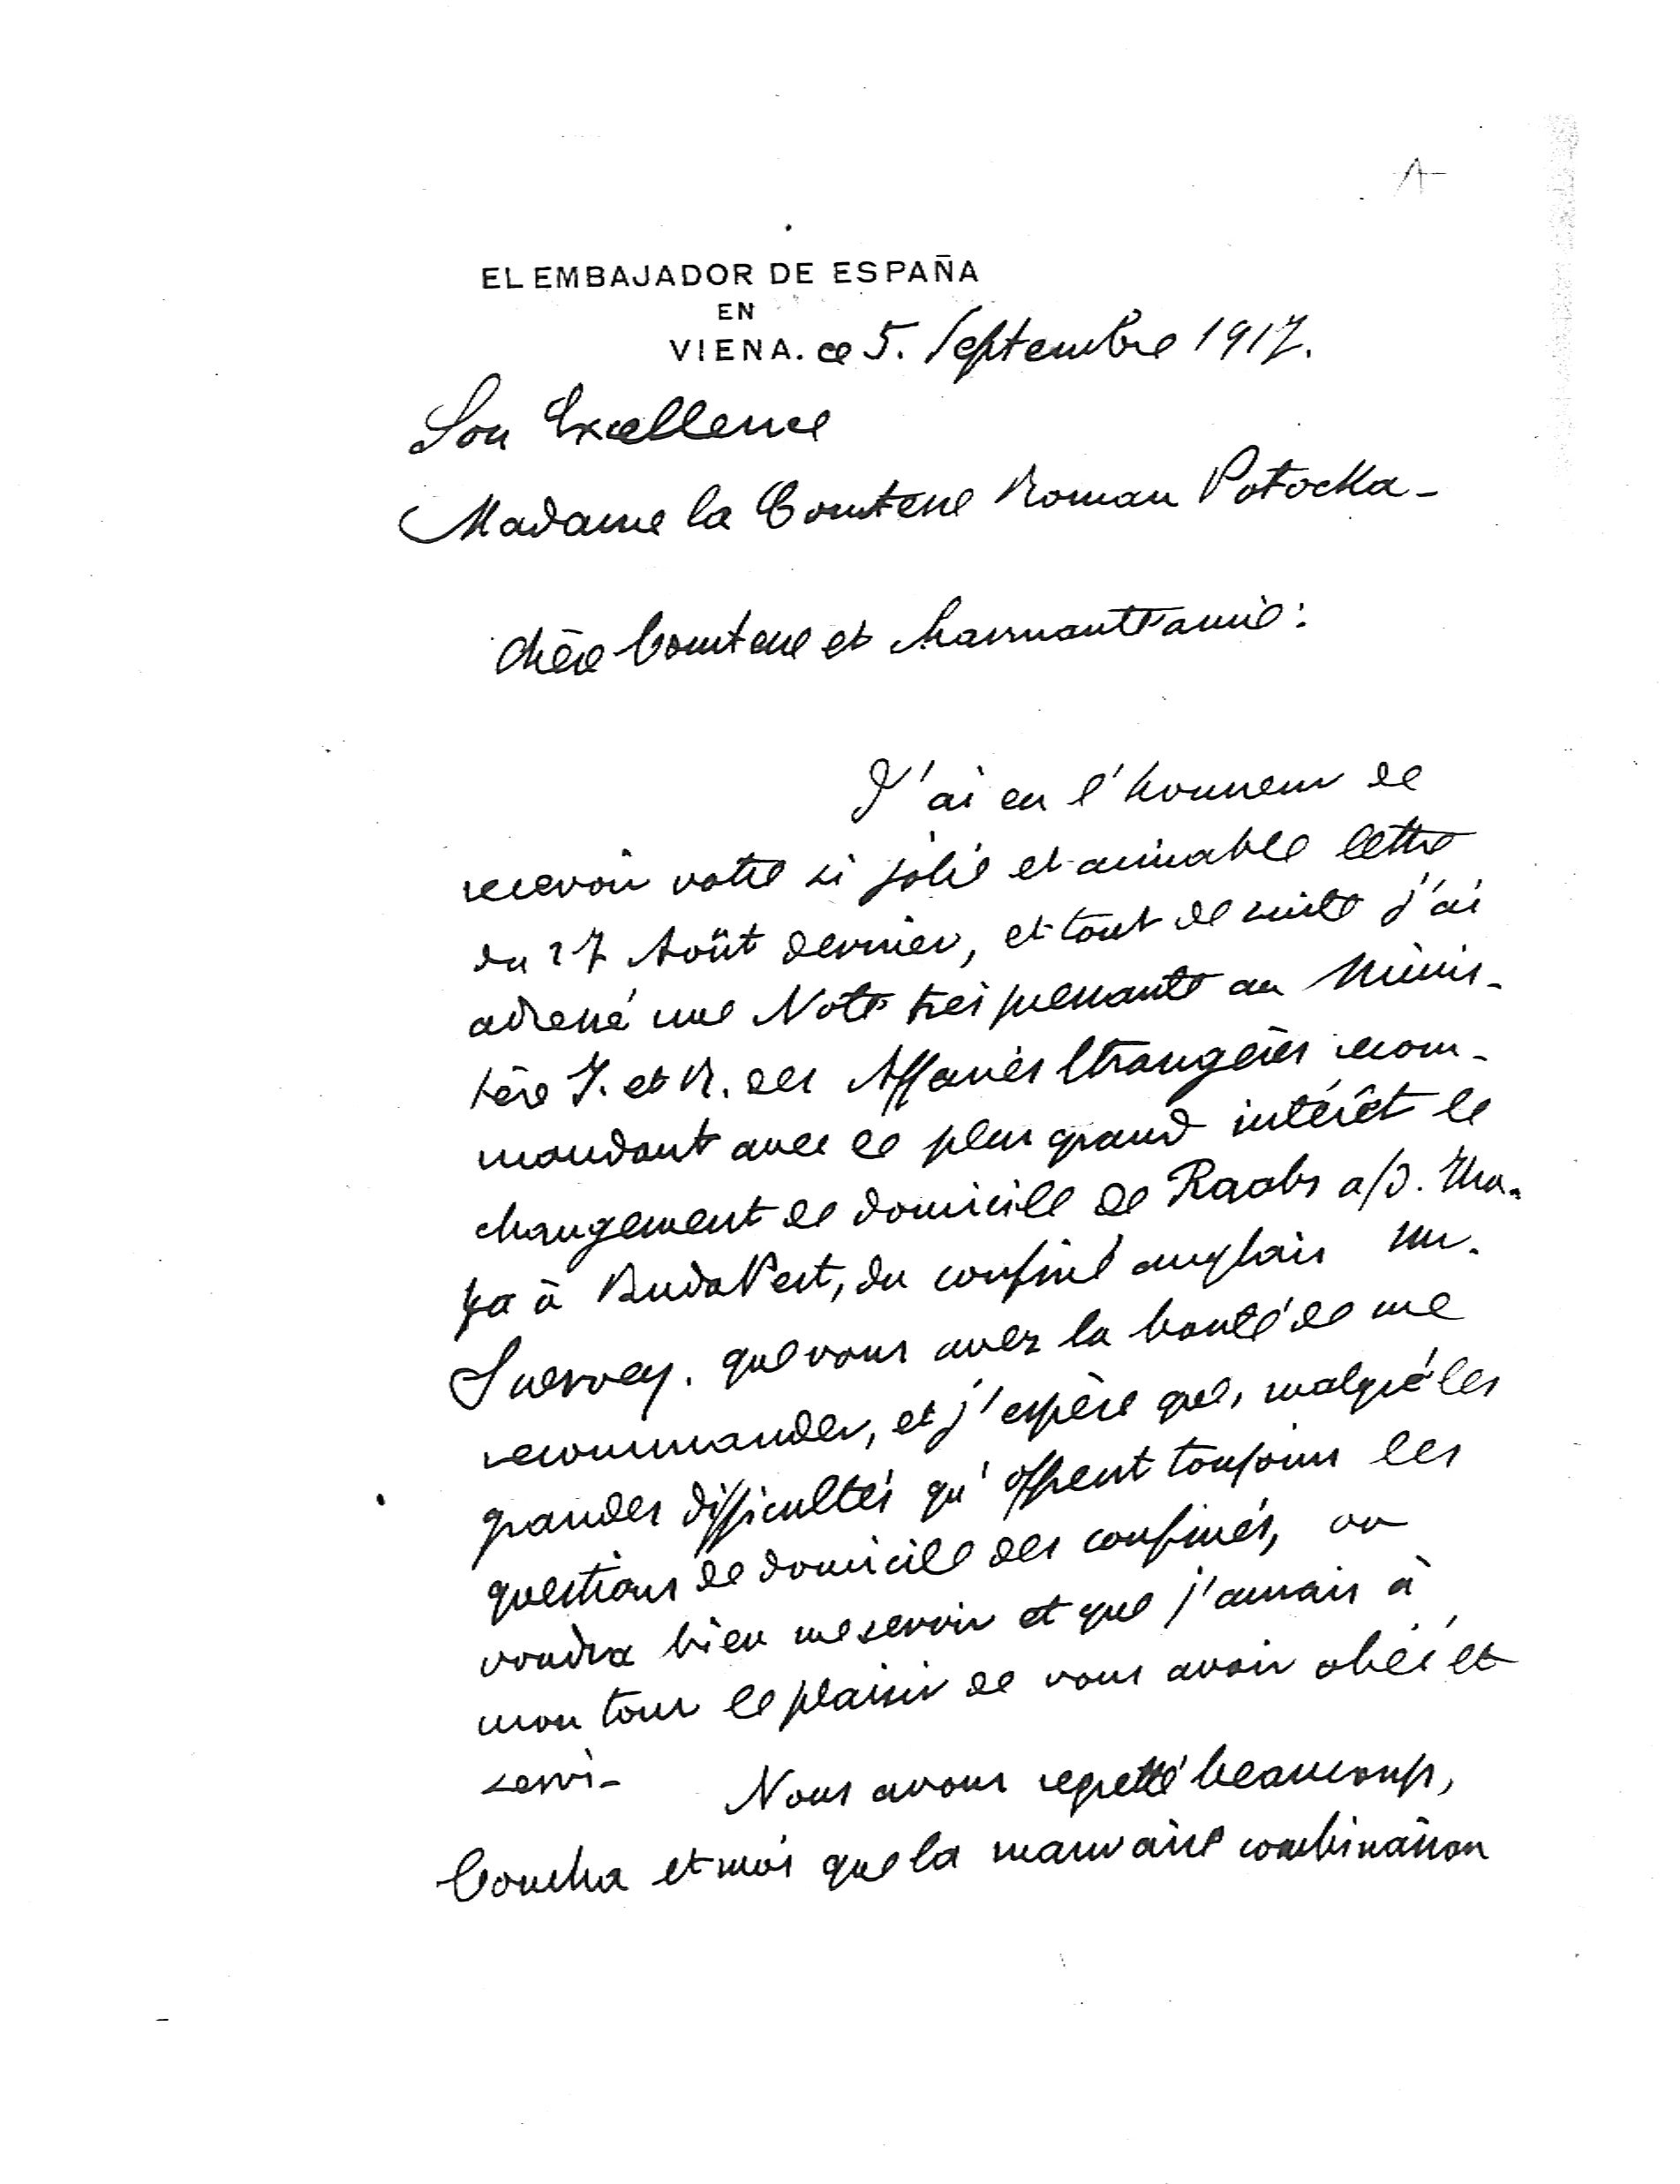 EL EMBAJADOR DE ESPAÑA
EN
VIENA. ce 5. Septembre 1917.
Son Excellence
Madame la Comtesse Roman Potocka-
Chère Comtesse et charmante amie:
J'ai eu l'honneur de
recevoir votre si jolie et aimable lettre
du 27 Août dernier, et tout de suite j'ai
adressé une Note très pressante au Minis-
tère I. et R. des Affaires Etrangères recom-
mandant avec le plus grand intérêt le
changement de domicile de Raabs a/d. Tha-
ya à BudaPest, du confiné anglais Mr.
que vous avez la bonté de me
recommander, et j'espère que, malgré les
grandes difficultés qu'offrent toujours les
questions de domicile des confinés, on
voudra bien me servir et que j'aurais à
mon tour le plaisir de vous avoir obéi et
servi-
Nous avons regretté beaucoup,
Concha et moi que la mauvaise combinaison